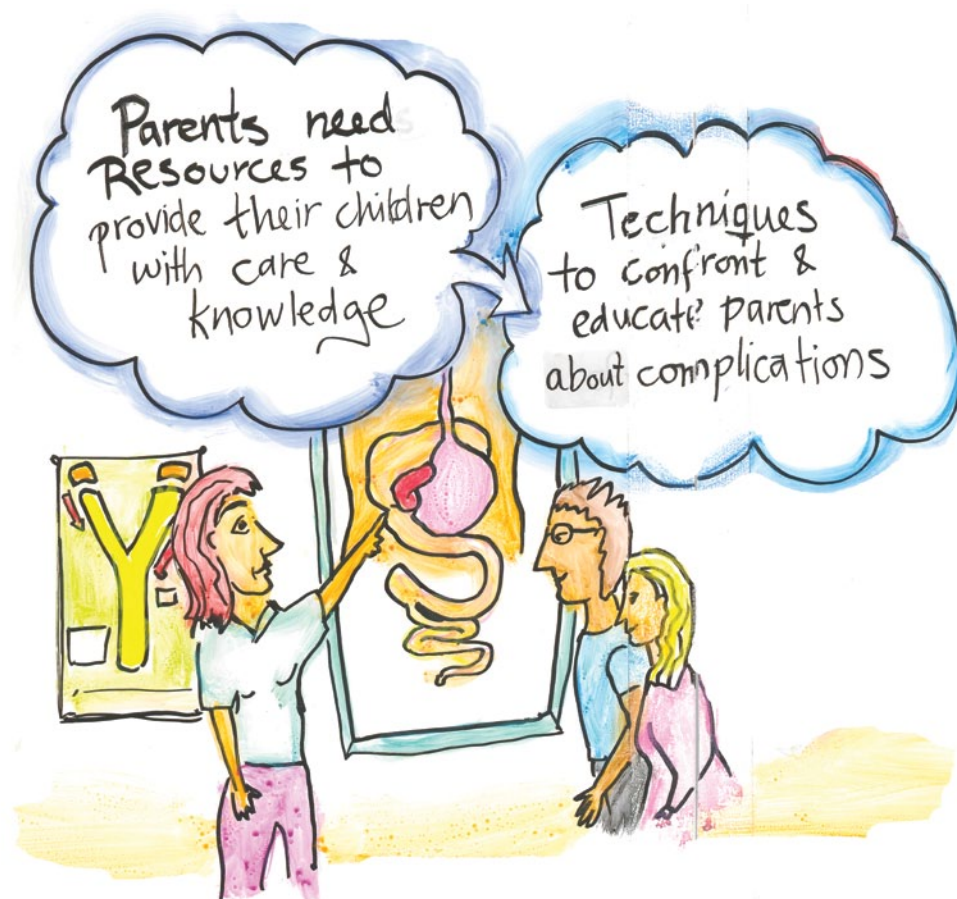 Parents need
Resources to
provide their children
with care &
knowledge
Techniques
to confront &
educate parents
about complications
Y